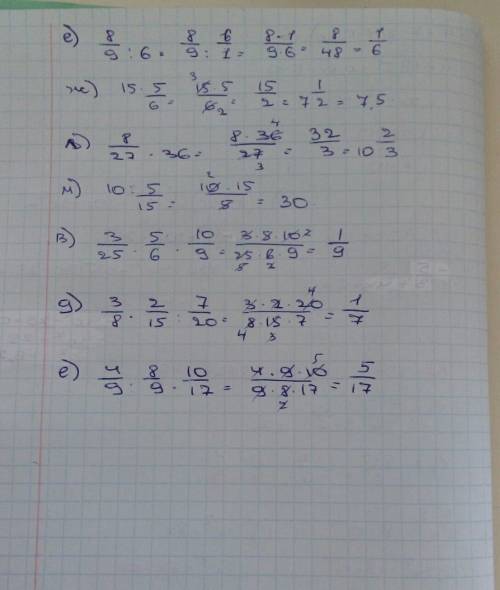 е) 8/9 : 6 = 8/9 : 6/1 = 8·1/9·6 = 8/48 = 1/6
ж) 15 · 5/6 = 15·5/6 = 15/2 = 7 1/2 = 7,5
л) 8/27 · 36 = 8·36/27 = 32/3 = 10 2/3
м) 10 : 5/15 = 10·15/5 = 30
в) 3/25 · 5/6 · 10/9 = 3·5·10/25·6·9 = 1/9
д) 3/8 · 2/15 : 7/20 = 3·2·20/8·15·7 = 1/7
е) 4/9 : 8/9 · 10/17 = 4·9·10/9·8·17 = 5/17